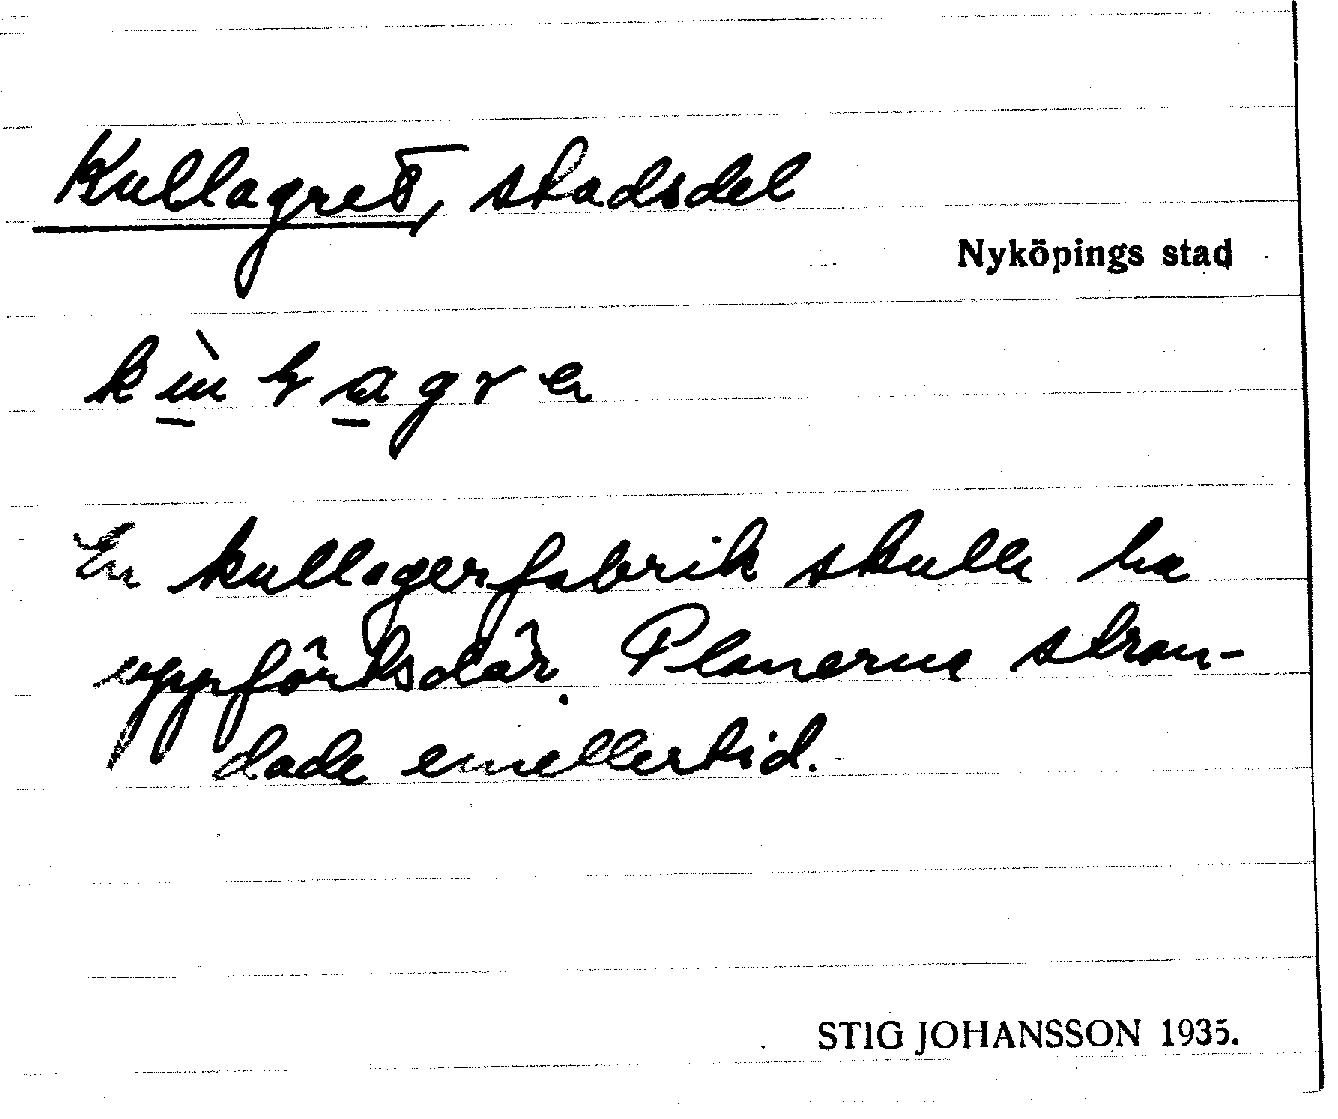 Kullagret, stadsdel
Nyköpings stad
En kullagerfabrik skulle ha
uppförts där. Planerna stran-
dade emellertid.
STIG JOHANSSON 1935.